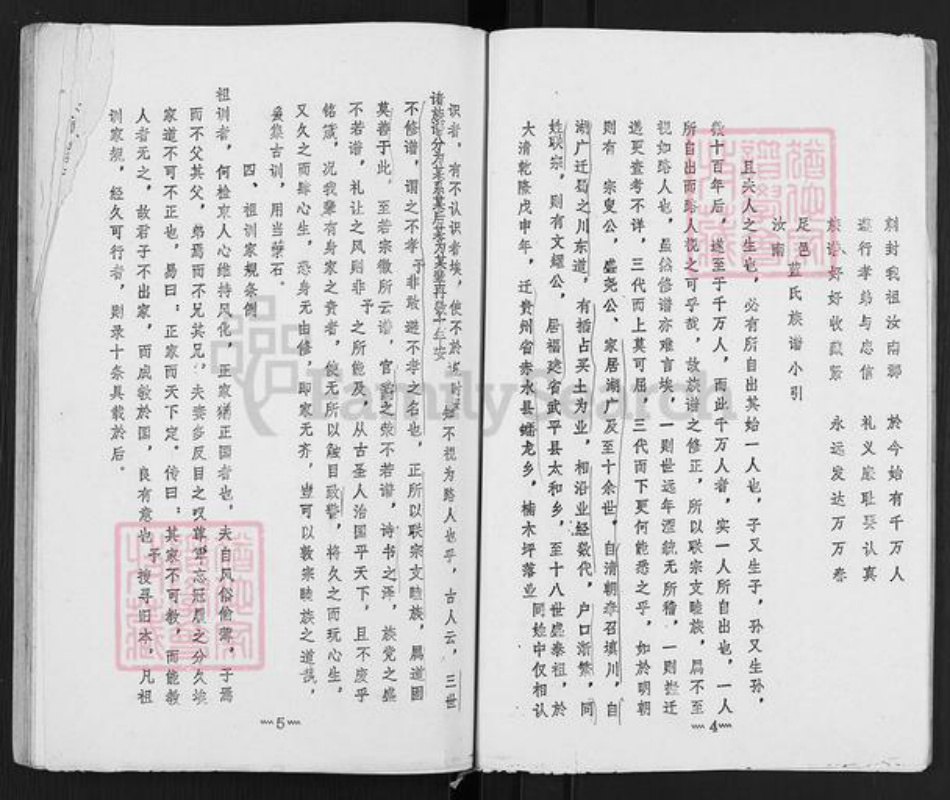 封我祖汝南郡 於今始有千万人
遵行孝弟与忠信 礼义廉耻要认真
族谱好好收藏紧 永远发达万万春
足邑
汝南 蓝氏族谱小引
且夫人之生也,必有所自出其始一人也,子又生子,孙又生孙,
数十百年后,遂至于千万人,而此千万人者,实一人所自出也,一人
所自出而路人视之可乎哉,故族谱之修正,所以联宗支睦族,属不至
视如路人也,虽然修谱亦难言埃,一则世远年湮统无所稽,一则迁
遥更查考不详,三代而上莫可屈,三代而下更何能悉之乎,如於明朝
则有 宗叟公,盛尧公、家居湖广及至十余世,自清朝奉召填川,自
湖广迁蜀之川东道,有插占买土为业,相沿业经数代,户口渐繁,同
姓联宗,则有文耀公,居福建省武平县太和乡,至十八世盛泰祖,於
大清乾隆戊申年,迁贵州省赤水县蟠龙乡,楠木坪落业 同姓中仅相认
4
识者,有不认识者埃,使不於 知不视为路人也乎,古人云,三世
不修谱,谓之不孝予非敢避不孝之名也,正所以联宗支睦族,属道固
莫善于此。至若宗徽所云谱,官爵之荣不若谱,诗书之泽,族党之盛
不若谱,礼让之风则非予之所能及,从古圣人治国平天下,且不废乎
铭箴,况我辈有身家之责者,使无所以触目致警,将久之而玩心生。
又久之而肆心生,恐身无由修,即家无齐,岂可以敦宗睦族之道哉,
爰集古训,用当药石。
四、祖训家规条例
祖训者,何检束人心维持风化,正家犹正国者也,夫自风俗偷薄,子焉
而不父其父,弟焉而不兄其兄,夫妻多反目之叹尊卑忘冠履之分久埃
家道不可不正也,易曰:正家而天下定。传曰:其家不可教,而能教
人者无之,故君子不出家,而成教於国,良有意也予搜寻旧本,凡祖
训家规,经久可行者,则录十条具载於后。
5
FamilySearch